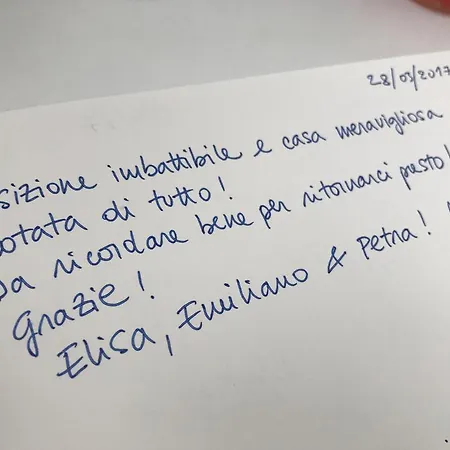 28/03/2017
sizione imbattibile e casa meravigliosa
dotata di tutto!
Da ricordare bene per ritornarci presto!
Grazie!
Elisa, Emiliano & Petra!